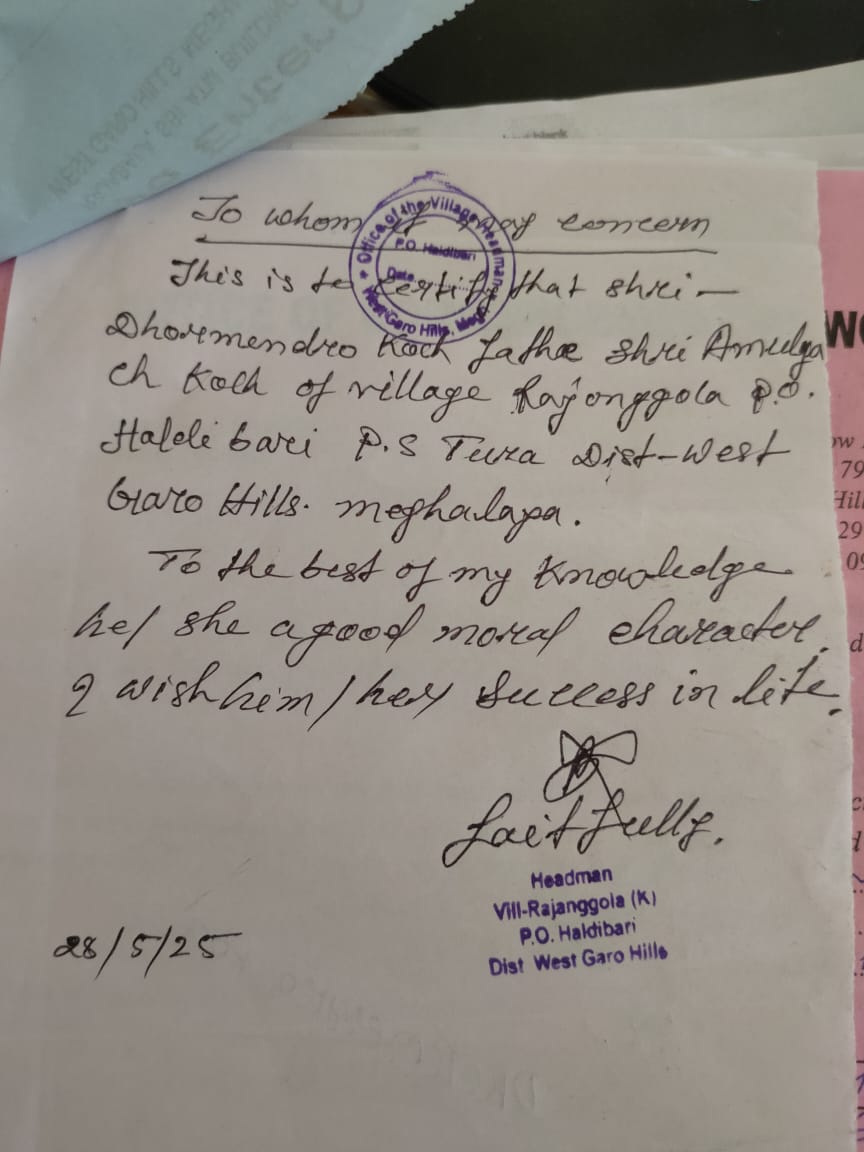 To whom it may concern
Office of the Village Headman
P.O. Haldibari
Date
West Garo Hills, Megh
This is to certify that shri -
Dhormendro Koch Fathe Shri Amulya
ch Koch of village Rajonggola P.O.
Haldi bari P.S Tura Dist-West
Garo Hills. meghalaya.
To the best of my Knowledge
he/ she a good moral character.
I wish him/her Success in life.
Faitfully.
Headman
Vill-Rajanggola (K)
P.O. Haldibari
Dist West Garo Hills
28/5/25
WEST GARO HILLS
SBI ATM BUILDING
Enter
79
Hill
29
09